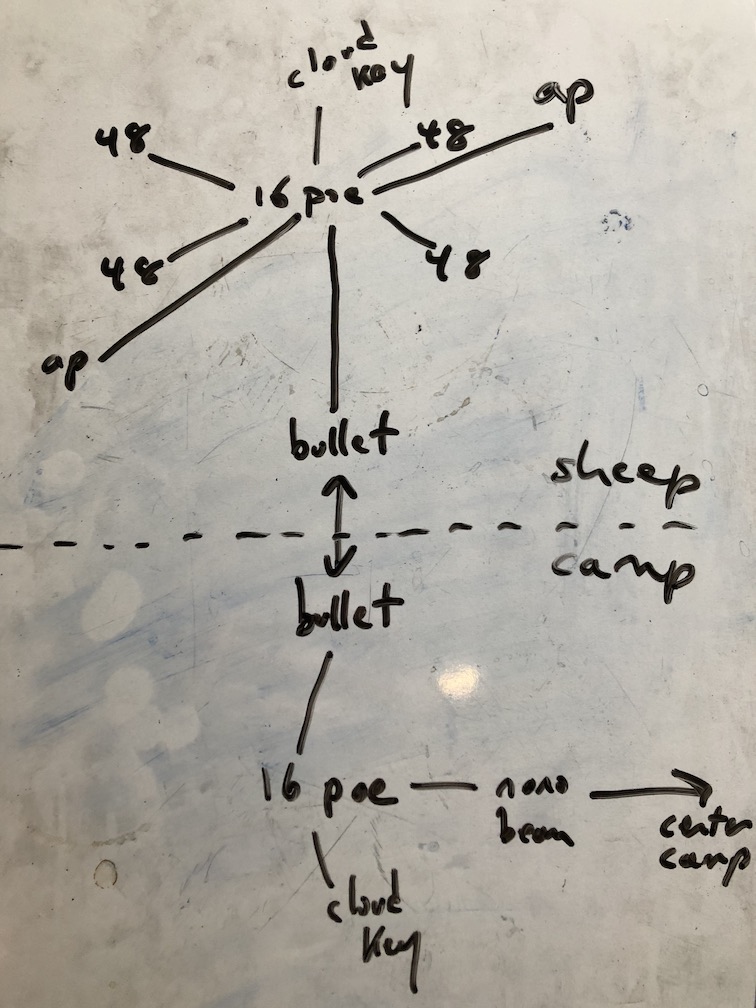 cloud
key
ap
48
48
16 poe
48
48
ap
bullet
sheep
camp
bullet
16 poe
nano
beam
centr
camp
cloud
key